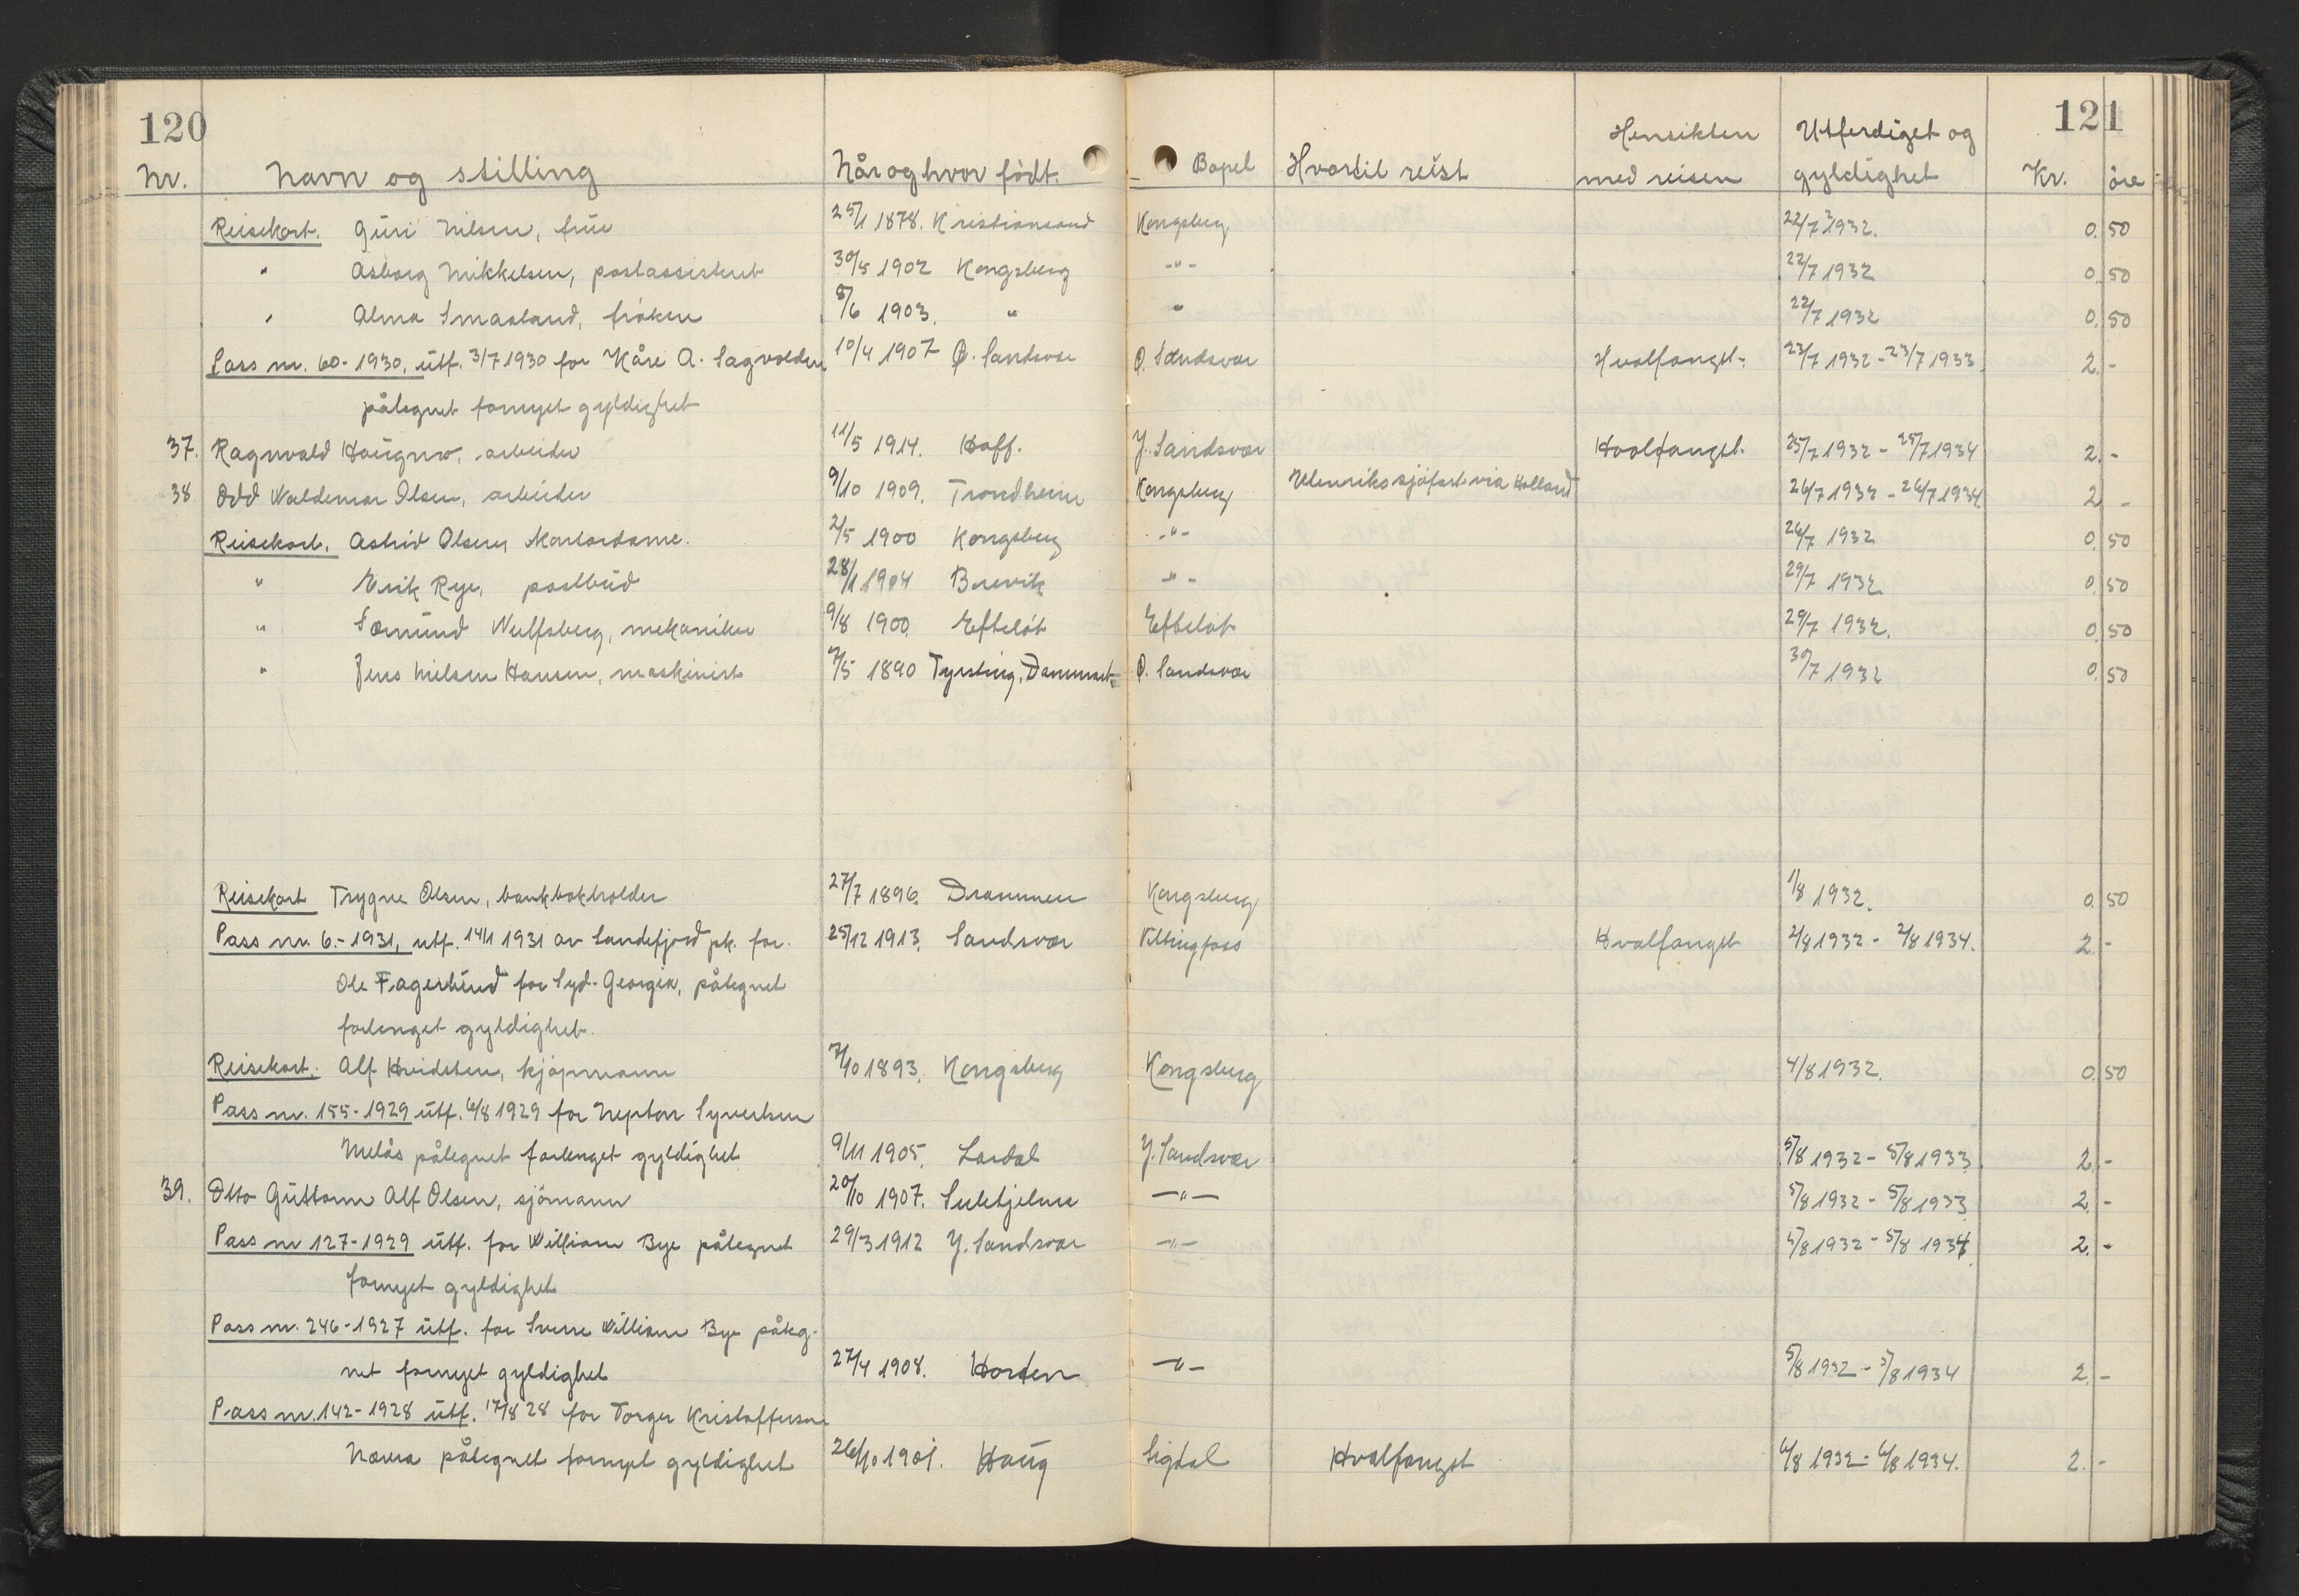 120
121
Nr. Navn og stilling Når og hvor født. Bopel Hvortil reist Hensikten med reisen Utferdiget og gyldighet Kr. öre
Reisekort. Guri Nilsen, frue 25/1 1878. Kristiansand Kongsberg 22/7 1932. 0. 50
" Åsborg Mikkelsen, postassistent 30/5 1902 Kongsberg -"- 22/7 1932 0. 50
" Alma Smaaland, frøken 8/6 1903. " " 22/7 1932 0. 50
Pass nr. 60-1930, utf. 3/7 1930 for Kåre A. Sagvolden 10/4 1907 Ø. Sandsvær Ø. Sandsvær Hvalfangst. 23/7 1932 - 23/7 1933. 2. -
påtegnet fornyet gyldighet
37. Ragnvald arbeider 11/5 1914. Hoff. Y. Sandsvær Hvalfangst. 25/7 1932 - 25/7 1934 2. -
38 Odd Waldemar Olsen, arbeider 9/10 1909. Trondheim Kongsberg Utenriks sjøfart via Holland 26/7 1932 - 26/7 1934 2 -
Reisekort. Astrid Olsen, kontordame. 2/5 1900 Kongsberg -"- 26/7 1932 0. 50
" Erik Rye, postbud 28/1 1904 Brevik -"- 29/7 1932. 0. 50
" Sæmund Wulfsberg, mekaniker 9/8 1900. Efteløt Efteløt 29/7 1932. 0. 50
" Jens Nielsen Hansen, maskinist 7/5 1890 Tyrsting, Danmark Ø. Sandsvær 30/7 1932 0. 50
Reisekort Trygve Olsen, bankbokholder 27/7 1896. Drammen Kongsberg 1/8 1932. 0. 50
Pass nr. 6.-1931, utf. 14/1 1931 av Sandefjord pk. for 25/12 1913. Sandsvær Vittingfoss Hvalfangst 2/8 1932 - 2/8 1934. 2 -
Ole Fagerlund for Syd-Georgia, påtegnet
forlenget gyldighet.
Reisekort. Alf Hvidsten, kjøpmann 7/10 1893. Kongsberg Kongsberg 4/8 1932. 0. 50
Pass nr. 155-1929 utf. 6/8 1929 for Nepton Syvertsen
Melås påtegnet forlenget gyldighet 9/11 1905. Lardal Y. Sandsvær 5/8 1932 - 5/8 1933 2. -
39. Otto Guttorm Alf Olsen, sjömann 20/10 1907. Sulitjelma -"- 5/8 1932 - 5/8 1933 2. -
Pass nr 127-1929 utf. for William Bye påtegnet 29/3 1912 Y. Sandsvær -"- 5/8 1932 - 5/8 1934. 2. -
fornyet gyldighet
Pass nr. 246-1927 utf. for Sverre William Bye påteg-
net fornyet gyldighet 27/4 1908. Horten -"- 5/8 1932 - 5/8 1934 2. -
Pass nr. 142-1928 utf. 17/8 28 for Torger Kristoffersen
påtegnet fornyet gyldighet 26/10 1901. Haug Sigdal Hvalfangst 6/8 1932 - 6/8 1934. 2. -